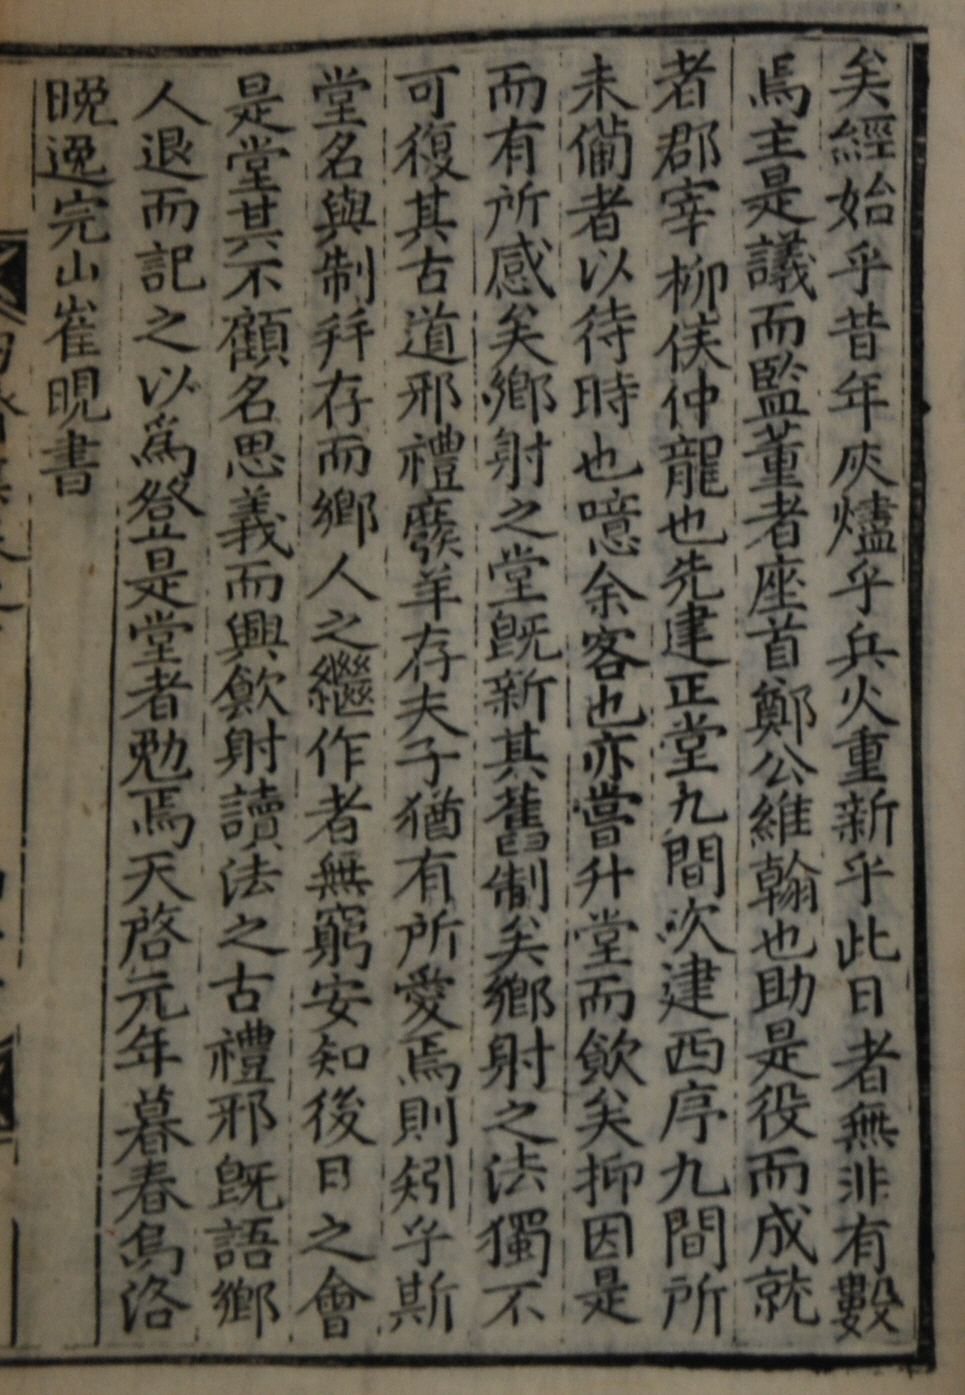 矣經始乎昔年灰燼乎兵火重新乎此日者無非有數
焉主是議而監董者座首鄭公維翰也助是役而成就
者郡宰柳侯仲龍也先建正堂九間次建西序九間所
未備者以待時也噫余客也亦嘗升堂而飮矣抑因是
而有所感矣鄉射之堂旣新其舊制矣鄉射之法獨不
可復其古道邪禮廢羊存夫子猶有所愛焉則矧乎斯
堂名與制幷存而鄉人之繼作者無窮安知後日之會
是堂其不顧名思義而興飮射讀法之古禮邪旣語鄉
人退而記之以爲登是堂者勉焉天啓元年暮春烏洛
晩逸完山崔晛書